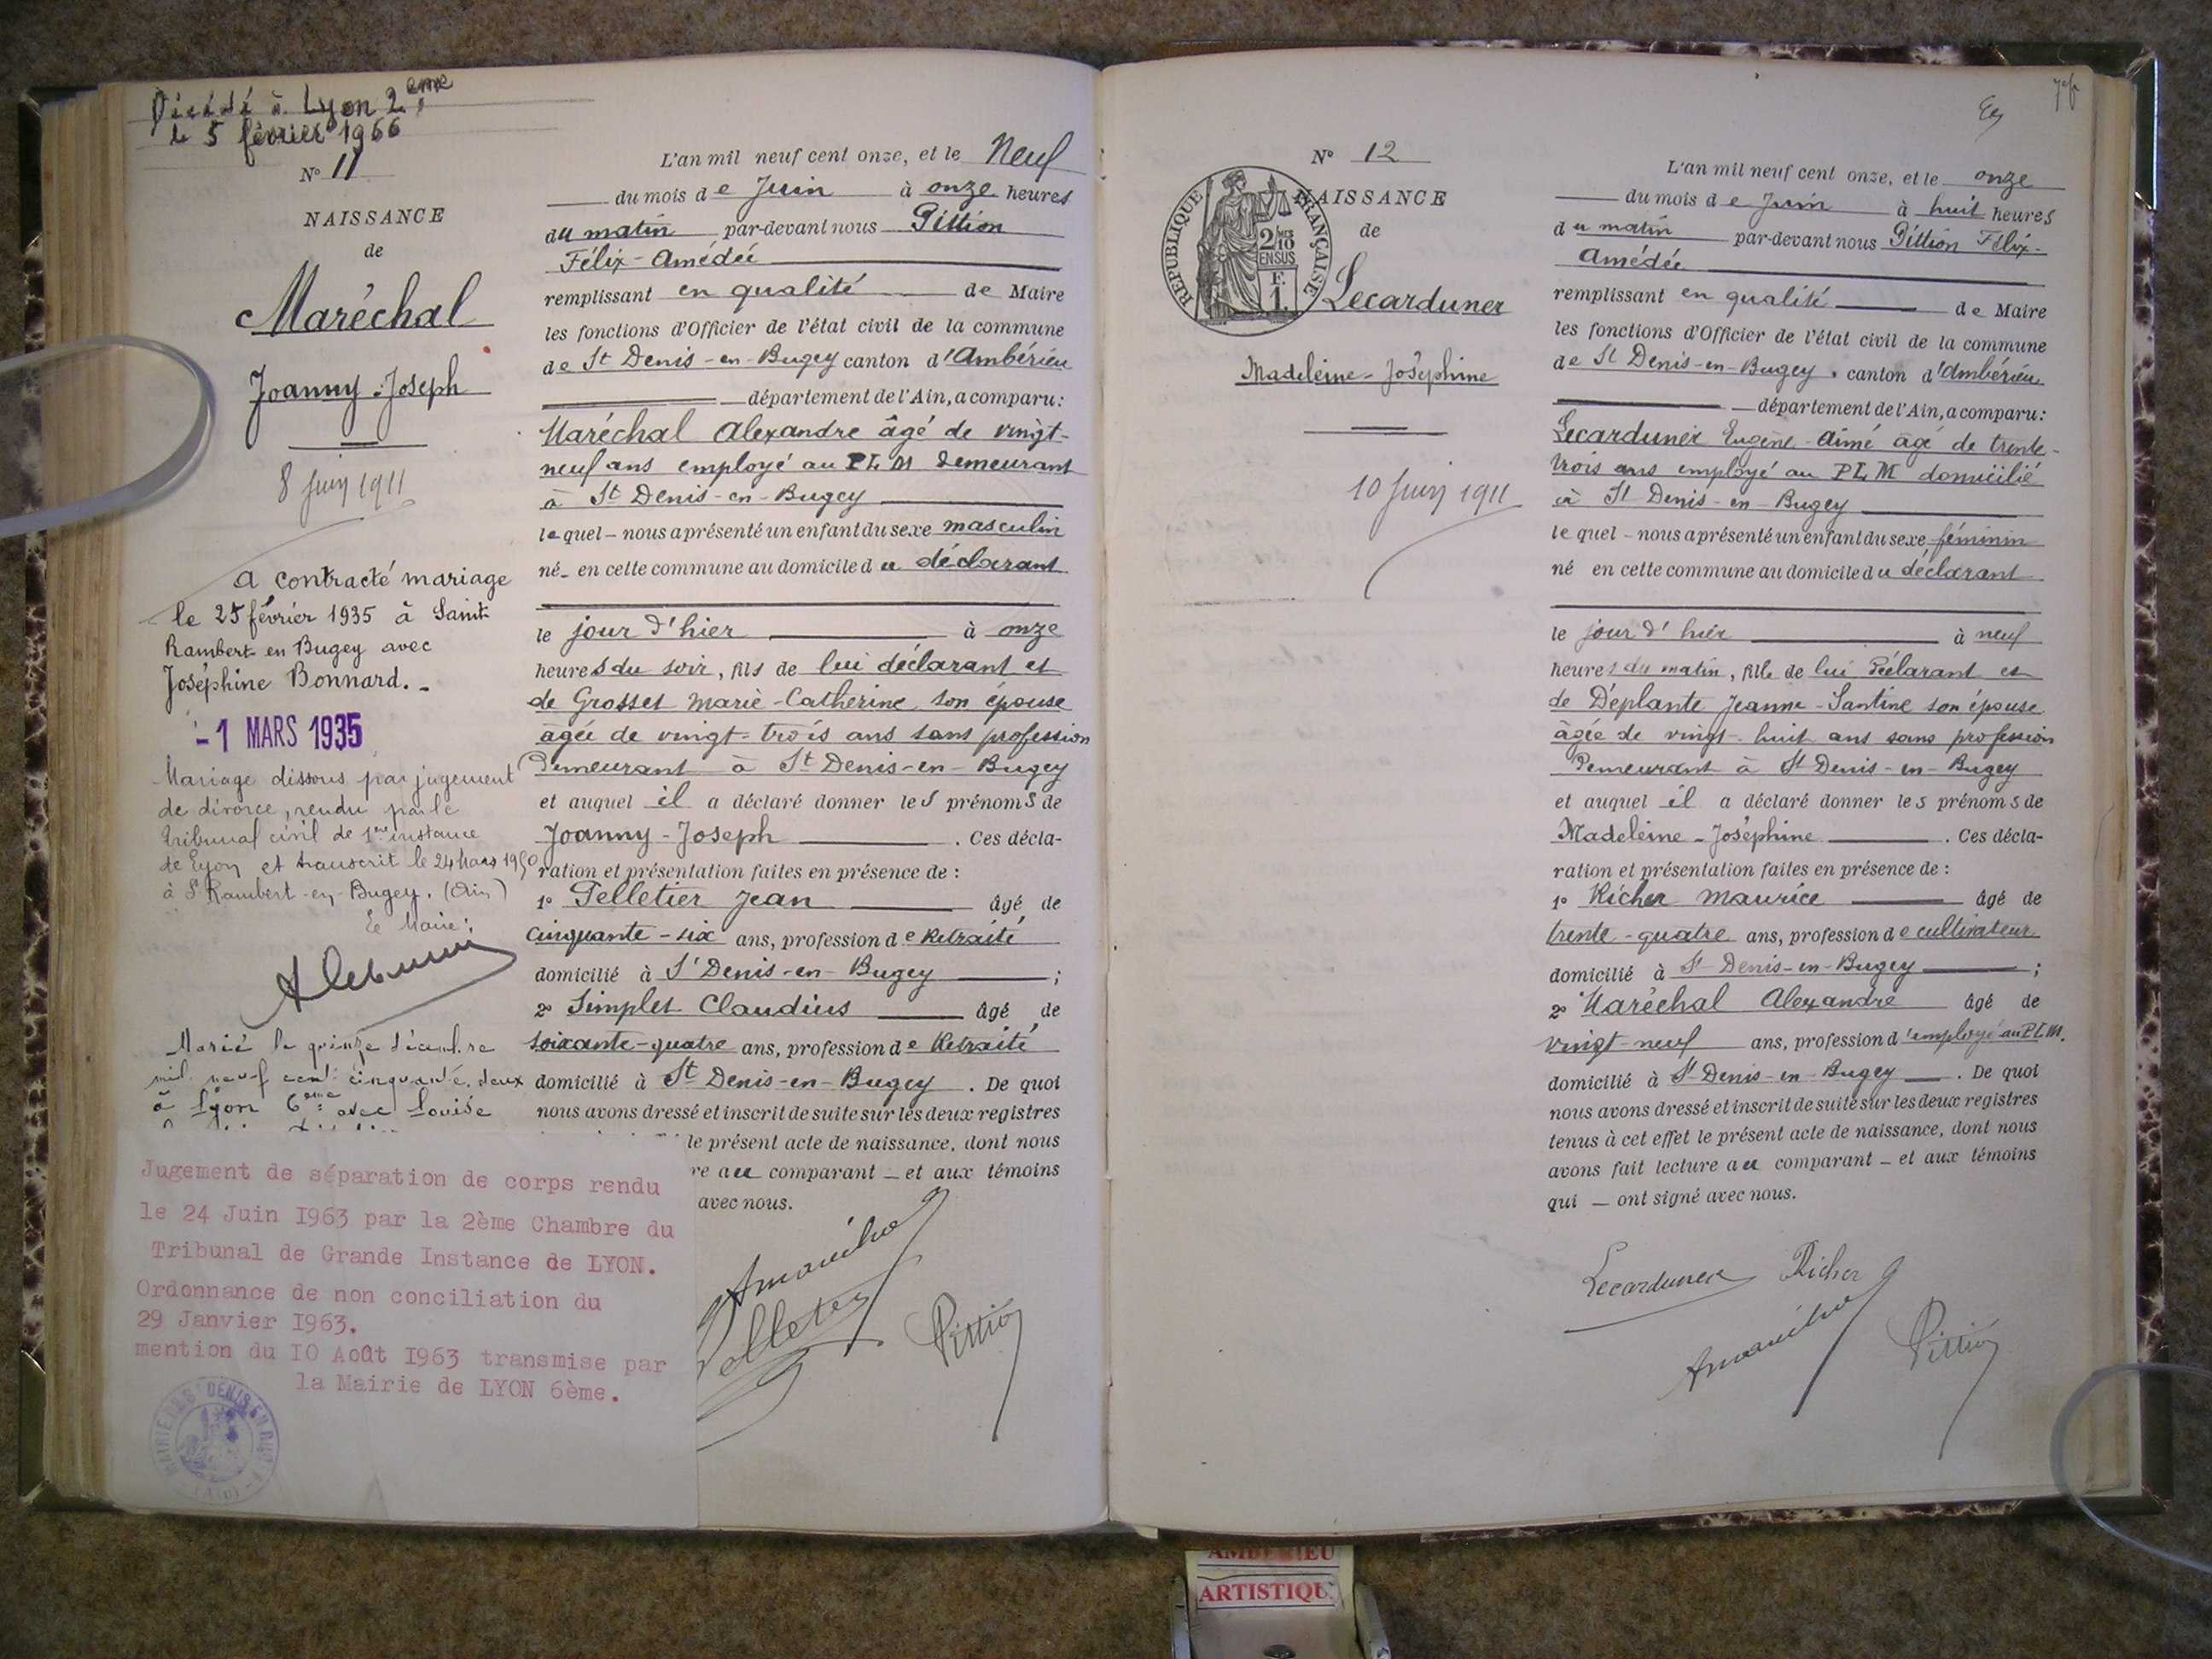 Décédé à Lyon 2ème
le 5 février 1966
N° 11
NAISSANCE
de
Maréchal
Joanny-Joseph
8 Juin 1911
a contracté mariage
le 25 février 1935 à Saint
Rambert en Bugey avec
Joséphine Bonnard.
-1 MARS 1935
Mariage dissous par jugement
de divorce, rendu par le
Tribunal civil de 1ère instance
de Lyon et transcrit le 24 Mars 1950
à St Rambert-en-Bugey. (Ain)
Le Maire:
Marié le quinze décembre
mil neuf cent cinquante-deux
à Lyon 6ème avec Louise
Jugement de séparation de corps rendu
le 24 Juin I963 par la 2ème Chambre du
Tribunal de Grande Instance de LYON.
Ordonnance de non conciliation du
29 Janvier I963.
mention du IO Août I963 transmise par
la Mairie de LYON 6ème.
L'an mil neuf cent onze, et le Neuf
du mois de Juin à onze heures
du matin par-devant nous Pittion
Félix-Amédée
remplissant en qualité de Maire
les fonctions d'Officier de l'état civil de la commune
de St Denis-en-Bugey canton d'Ambérieu
département de l'Ain, a comparu:
Maréchal Alexandre âgé de vingt-
neuf ans employé au PLM demeurant
à St Denis-en-Bugey
lequel - nous a présenté un enfant du sexe masculin
né - en cette commune au domicile du déclarant
le jour d'hier à onze
heures du soir, fils de lui déclarant et
de Grosset Marie-Catherine son épouse
âgée de vingt-trois ans sans profession
Demeurant à St Denis-en-Bugey
et auquel il a déclaré donner les prénoms de
Joanny-Joseph . Ces décla-
ration et présentation faites en présence de :
1° Pelletier Jean âgé de
cinquante-six ans, profession de Retraité
domicilié à St Denis-en-Bugey ;
2° Simplet Claudius âgé de
soixante-quatre ans, profession de Retraité
domicilié à St Denis-en-Bugey . De quoi
nous avons dressé et inscrit de suite sur les deux registres
le présent acte de naissance, dont nous
re au comparant - et aux témoins
avec nous.
Amaréchal
Pelletier
Pittion
N° 12
NAISSANCE
de
RÉPUBLIQUE FRANÇAISE
2 10MES
EN SUS
F.
1.
Lecarduner
Madeleine-Joséphine
10 Juin 1911
L'an mil neuf cent onze, et le onze
du mois de Juin à huit heures
du matin par-devant nous Pittion Félix-
Amédée
remplissant en qualité de Maire
les fonctions d'Officier de l'état civil de la commune
de St Denis-en-Bugey. canton d'Ambérieu
département de l'Ain, a comparu:
Lecarduner Eugène-Aimé âgé de trente-
trois ans employé au PLM domicilié
à St Denis-en-Bugey
lequel - nous a présenté un enfant du sexe féminin
né en cette commune au domicile du déclarant
le jour d'hier à neuf
heures du matin, fille de lui Déclarant et
de Déplante Jeanne-Santine son épouse
âgée de vingt-huit ans sans profession
Demeurant à St Denis-en-Bugey
et auquel il a déclaré donner les prénoms de
Madeleine-Joséphine . Ces décla-
ration et présentation faites en présence de :
1° Richer Maurice âgé de
trente-quatre ans, profession de cultivateur
domicilié à St Denis-en-Bugey ;
2° Maréchal Alexandre âgé de
vingt-neuf ans, profession d'employé au P.L.M.
domicilié à St Denis-en-Bugey . De quoi
nous avons dressé et inscrit de suite sur les deux registres
tenus à cet effet le présent acte de naissance, dont nous
avons fait lecture au comparant - et aux témoins
qui - ont signé avec nous.
Lecarduner Richer
Amaréchal
Pittion
AMBERIEU
ARTISTIQU